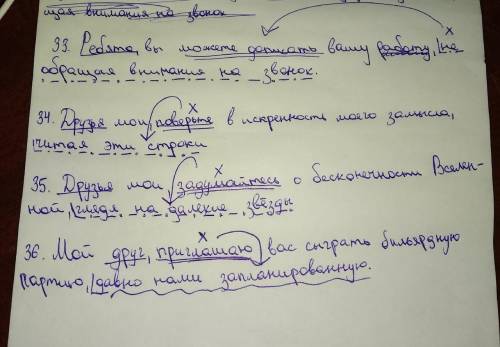 щая внимания на звонок
33. Ребята, вы можете дописать вашу работу, не
обращая внимания на звонок.
34. Друзья мои, поверьте в искренность моего замысла,
читая эти строки
35. Друзья мои, задумайтесь о бесконечности Вселен-
ной, глядя на далекие звёзды
36. Мой друг, приглашаю вас сыграть бильярдную
партию, давно нами запланированную.